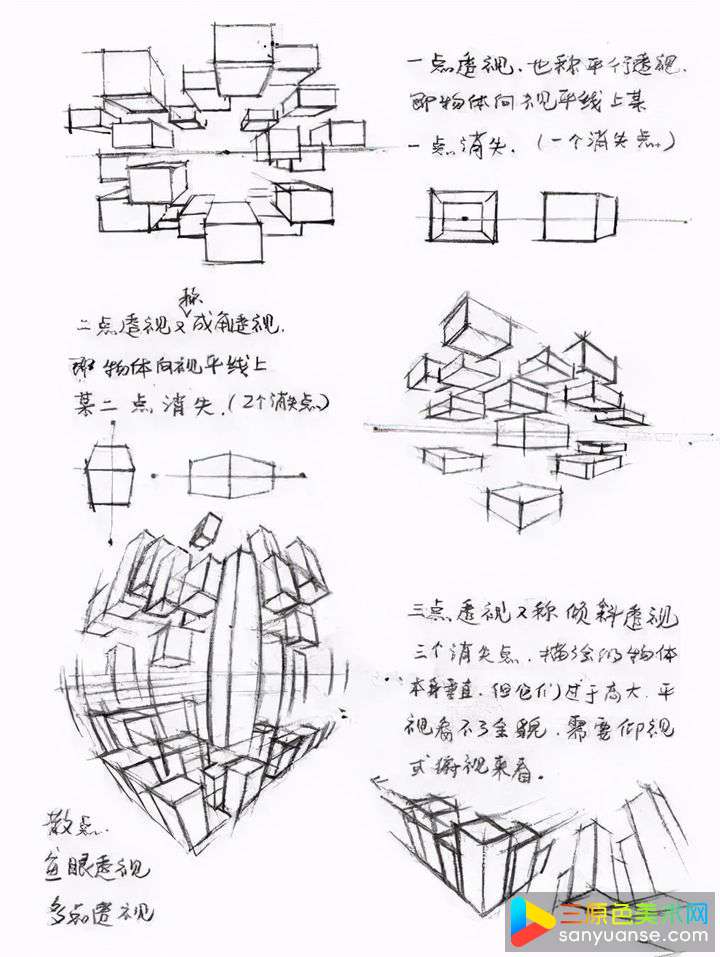 一点透视,也称平行透视,
即物体向视平线上某
一点消失.(一个消失点)
二点透视又称成角透视.
即物体向视平线上
某二点消失.(2个消失点)
三点透视又称倾斜透视
三个消失点,描绘的物体
本身垂直,但它们过于高大,平
视看不了全貌,需要仰视
或俯视来看。
散点.
鱼眼透视
多点透视
三原色美术网
sanyuanse.com